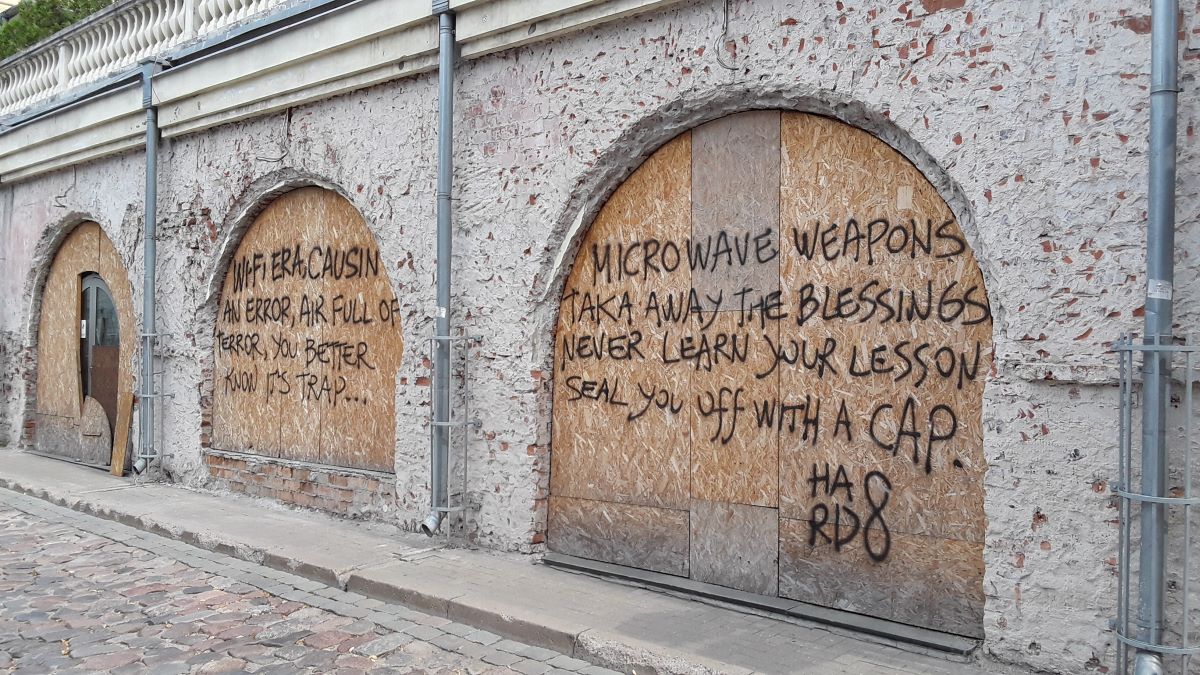 Wi-Fi ERA:CAUSIN
AN ERROR, AIR FULL OF
TERROR, YOU BETTER
KNOW IT'S TRAP...
MICROWAVE WEAPONS
TAKA AWAY THE BLESSINGS
NEVER LEARN YOUR LESSON
SEAL YOU Off WITH A CAP.
HA
RD8